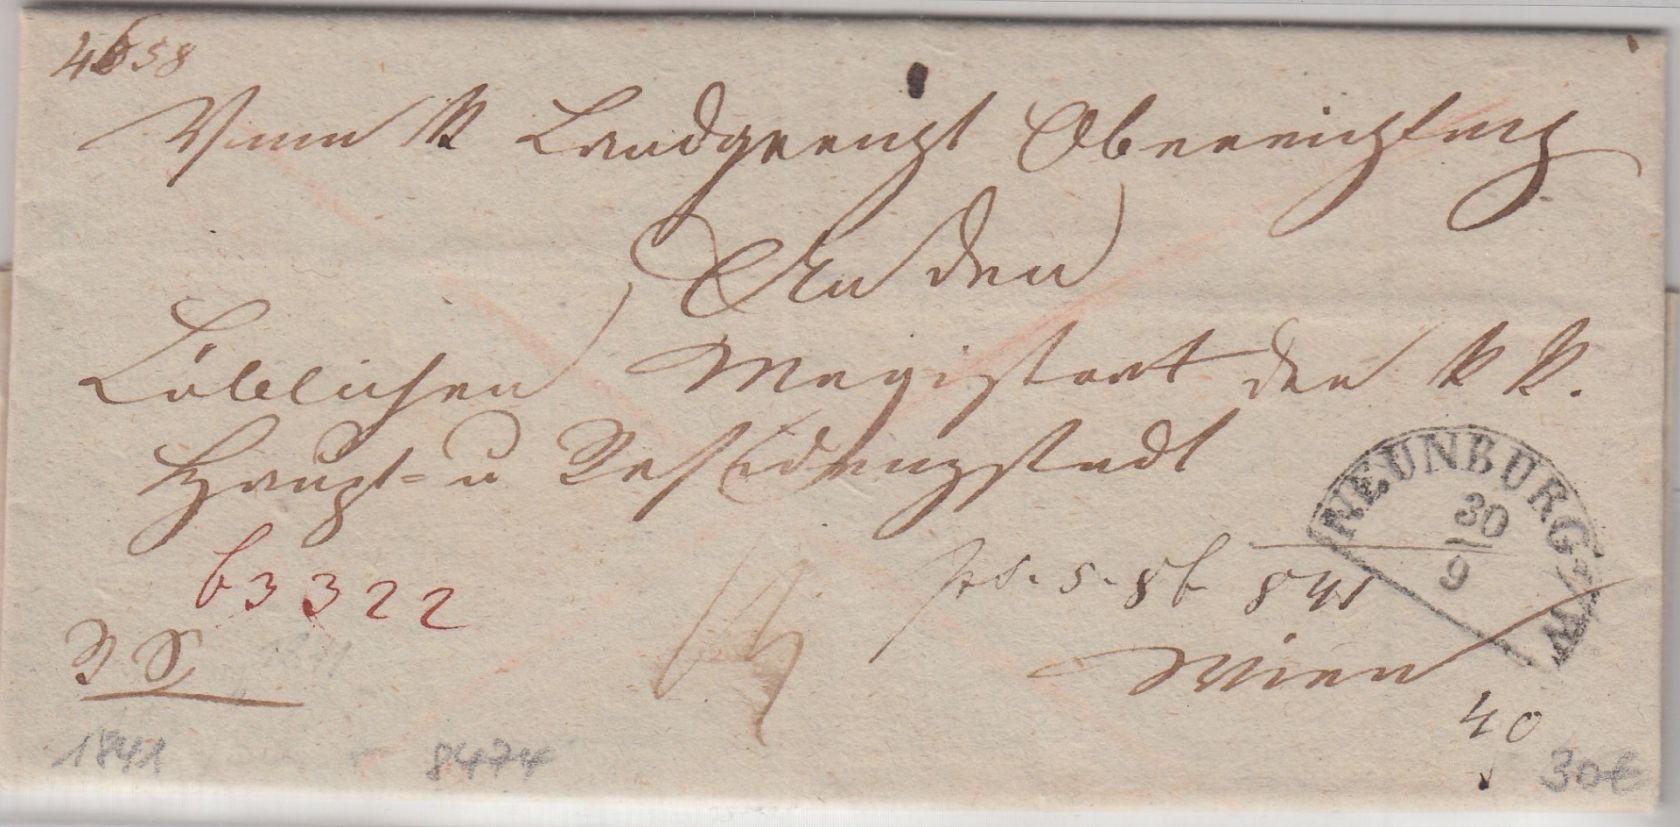 4658
Vom K Landgericht Oberviechtach
An den
Löblichen Magistrat der K K.
Haupt- u Residenzstadt
NEUNBURG
30
9
63322
841
Wien
R S
40
1841
8474
30€